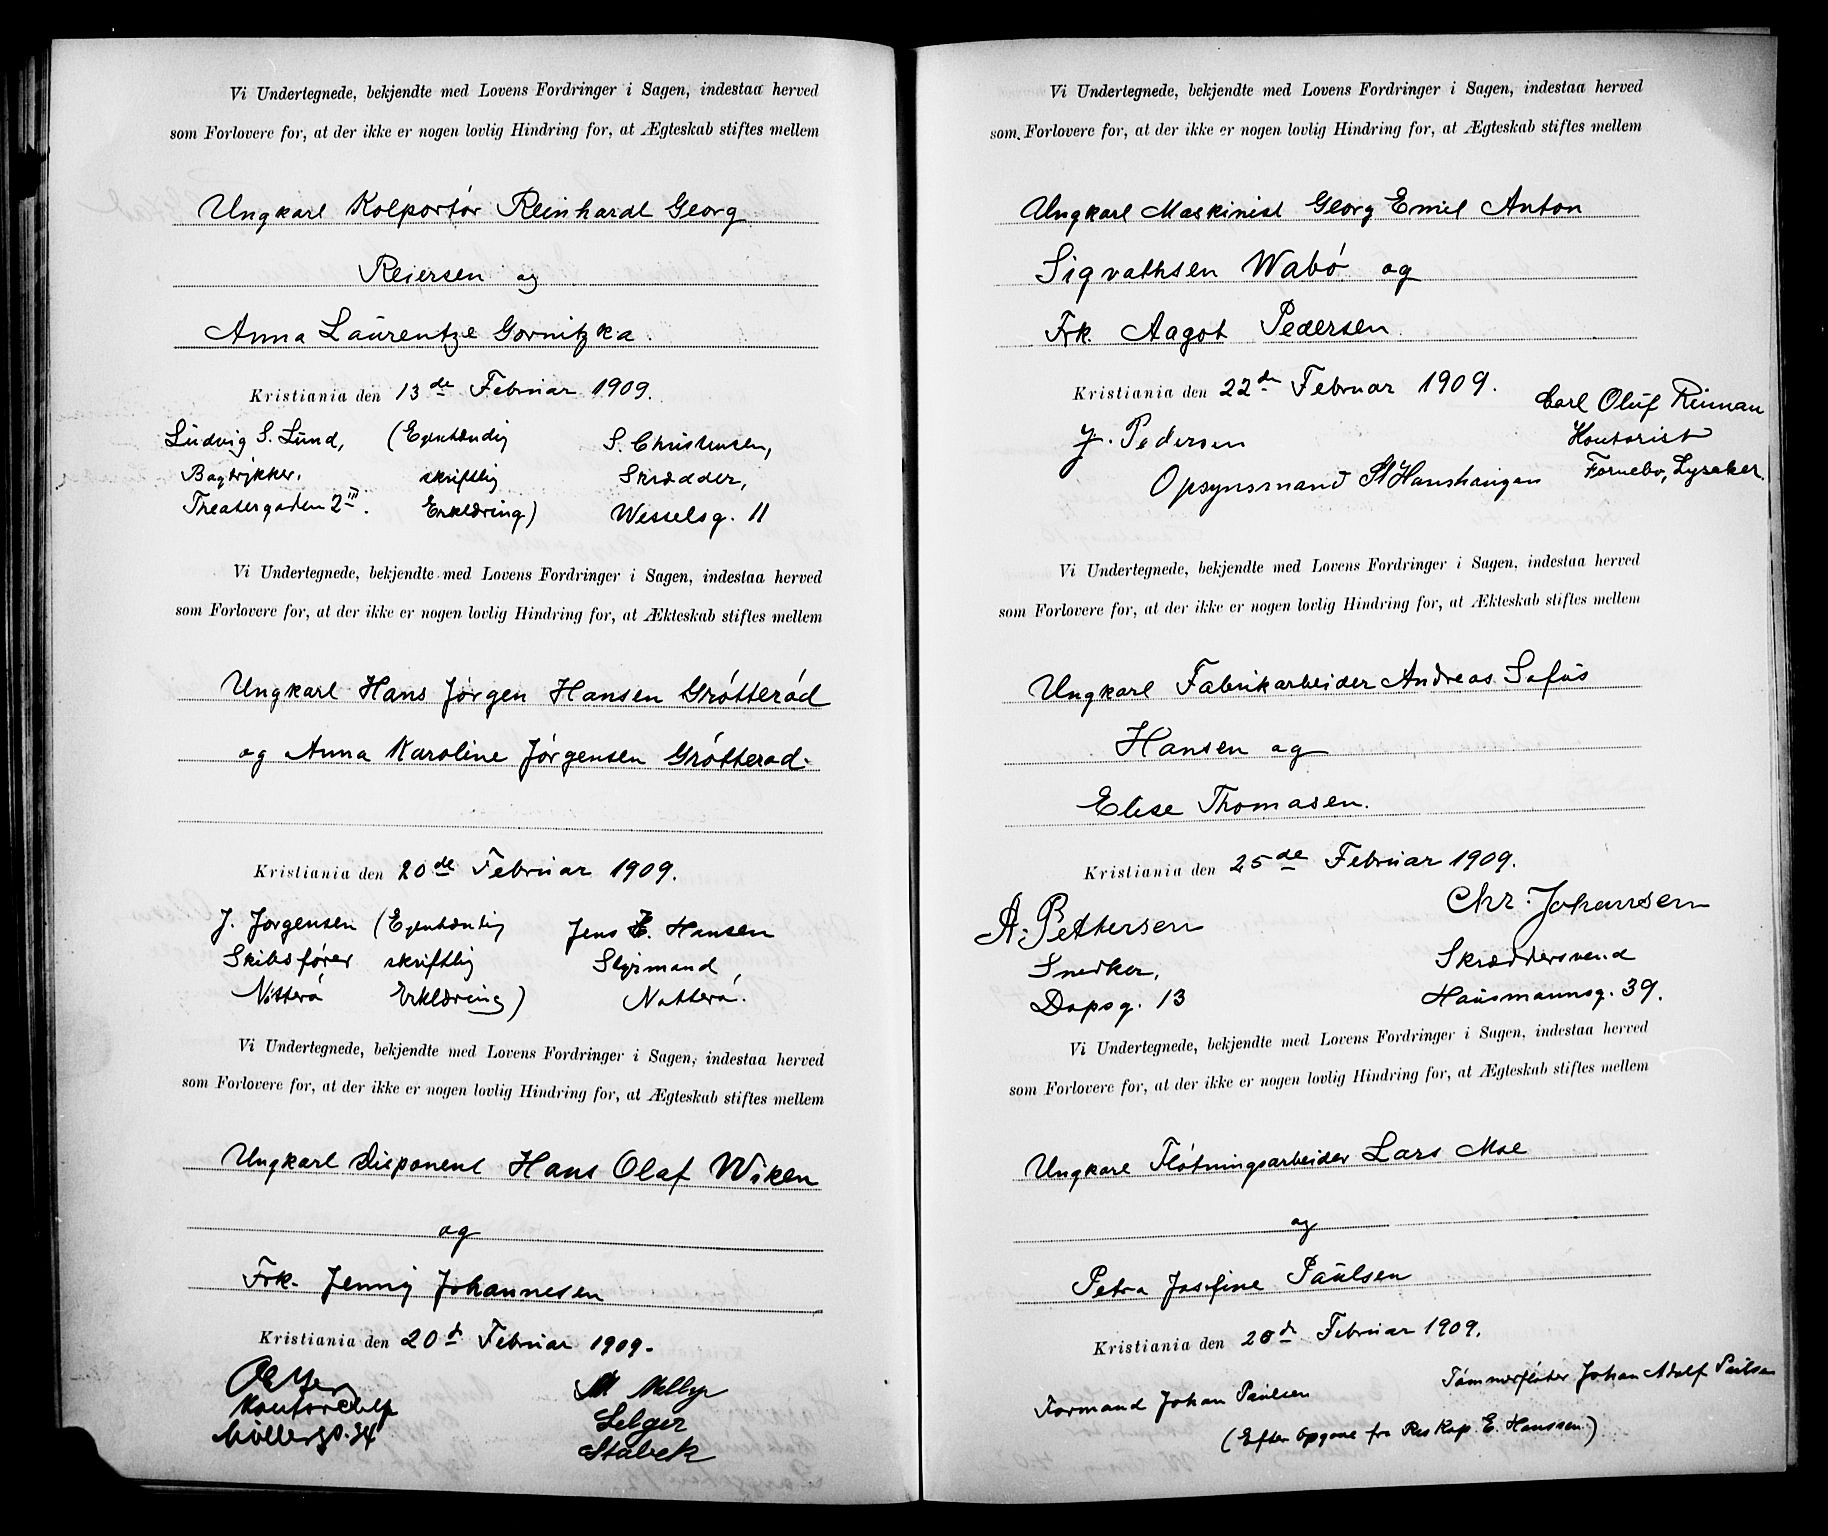 Vi Undertegnede, bekjendte med Lovens Fordringer i Sagen, indestaa herved
som Forlovere for, at der ikke er nogen lovlig Hindring for, at Ægteskab stiftes mellem
Ungkarl Kolportør Reinhardt Georg
Reiersen og
Anna Laurentze Gornitzka.
Kristiania den 13de Februar 1909.
Ludvig S. Lund, (Egenhændig S. Christensen,
Bogtrykker, skriftlig Skrædder,
Theatergaden 2III. Erklæring) Wesselsg. 11
Vi Undertegnede, bekjendte med Lovens Fordringer i Sagen, indestaa herved
som Forlovere for, at der ikke er nogen lovlig Hindring for, at Ækteskab stiftes mellem
Ungkarl Hans Jørgen Hansen Grøtterød
og Anna Karoline Jørgensen Grøtterød.
Kristiania den 20de Februar 1909.
J. Jørgensen (Egenhændig Jens E. Hansen
Skibsfører skriftlig Styrmand
Nøtterø Erklæring) Nøtterø.
Vi Undertegnede, bekjendte med Lovens Fordringer i Sagen, indestaa herved
som Forlovere for, at der ikke er nogen lovlig Hindring for, at Ægteskab stiftes mellem
Ungkarl disponent Hans Olaf Wiken
og
Frk. Jenny Johannesen
Kristiania den 20d Februar 1909.
M Melbye
Kontorchef Selger
Møllerg. 34 Stabek
Vi Undertegnede, bekjendte med Lovens Fordringer i Sagen, indestaa herved
som Forlovere for, at der ikke er nogen lovlig Hindring for, at Ægteskab stiftes mellem
Ungkarl Maskinist Georg Emil Anton
Sigvathsen Wabø og
Frk. Aagot Pedersen
Kristiania den 22de Februar 1909.
J. Pedersen Carl Oluf Riiman
Opsynsmand St Hanshaugen Kontorist
Fornebo, Lysaker.
Vi Undertegnede, bekjendte med Lovens Fordringer i Sagen, indestaa herved
som Forlovere for, at der ikke er nogen lovlig Hindring for, at Ækteskab stiftes mellem
Ungkarl Fabrikarbeider Andreas Sofus
Hansen og
Elise Thomasen.
Kristiania den 25de Februar 1909.
A. Pettersen Chr. Johansen
Snedker, Skræddersvend
Dopsg. 13 Hausmannsg. 39.
Vi Undertegnede, bekjendte med Lovens Fordringer i Sagen, indestaa herved
som Forlovere for, at der ikke er nogen lovlig Hindring for, at Ægteskab stiftes mellem
Ungkarl Fløtningsarbeider Lars Moe
og
Petra Josefine Paulsen
Kristiania den 26de Februar 1909.
Formand Johan Paulsen Tømmerfløter Johan Adolf Paulsen
(Efter Opgave fra Res Kap. E. Hanssen.)